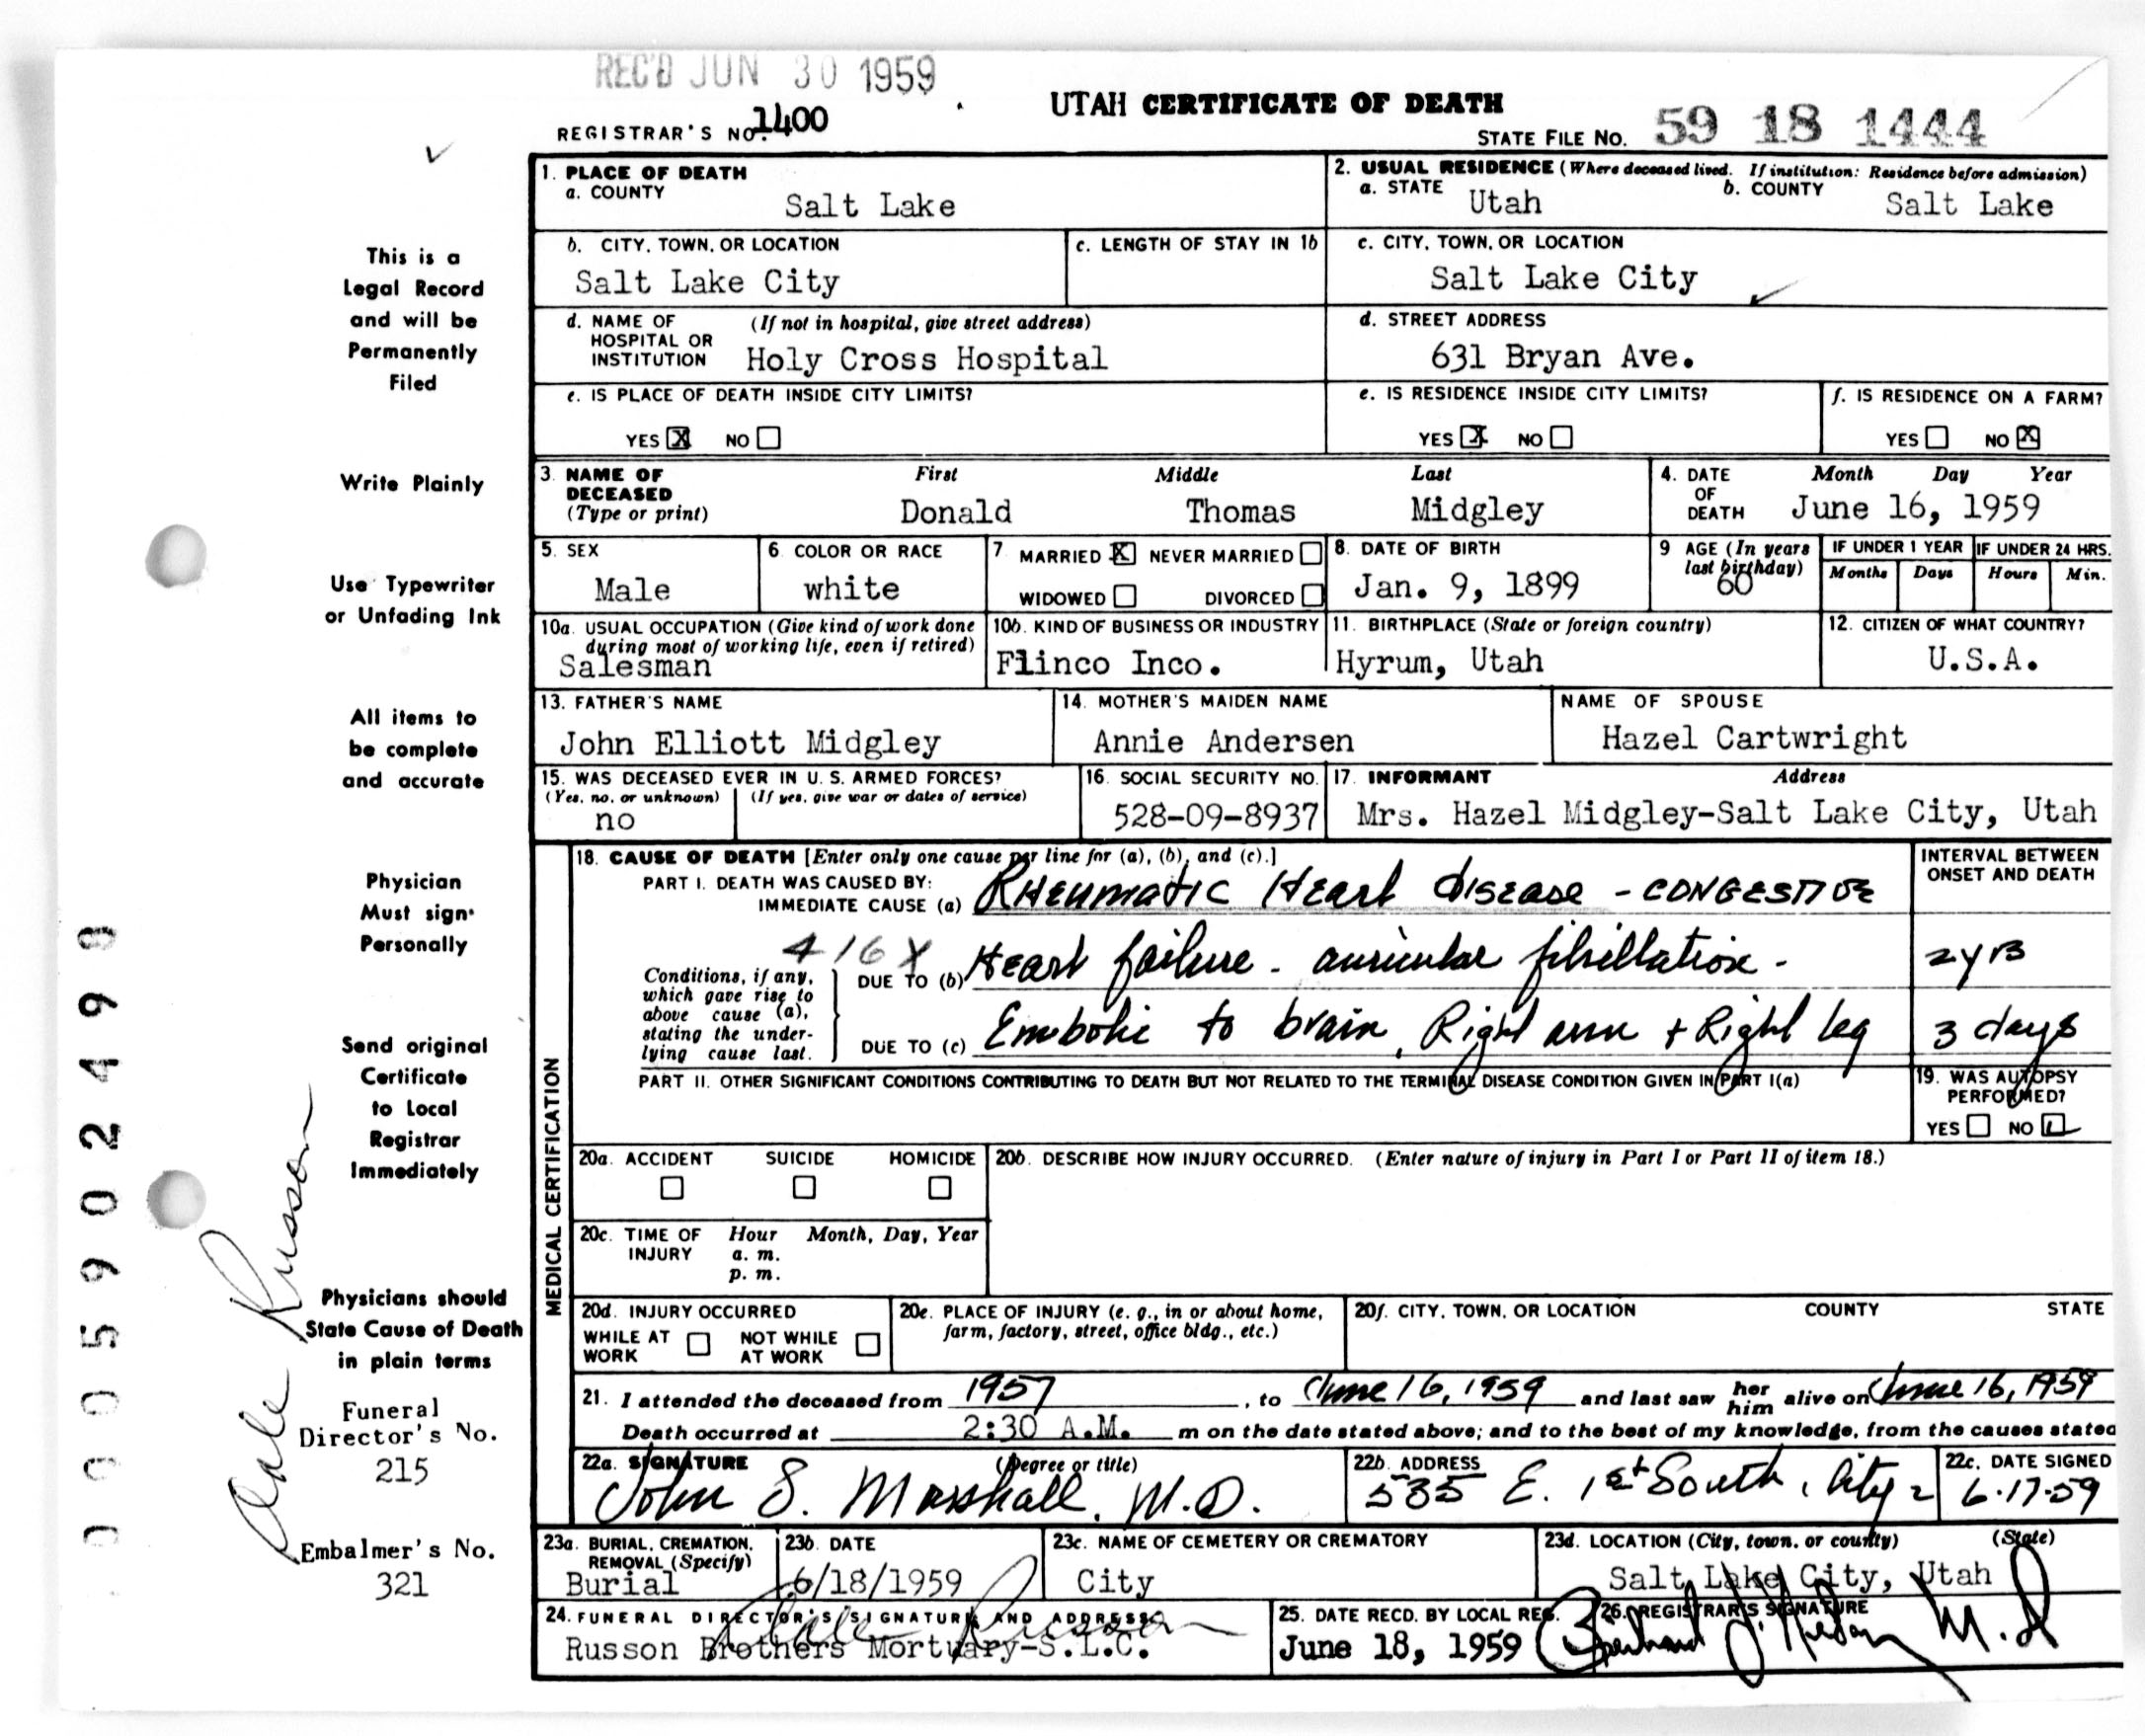 REC'D JUN 30 1959
UTAH CERTIFICATE OF DEATH
REGISTRAR'S NO. 1400
STATE FILE No. 59 18 1444
1. PLACE OF DEATH
a. COUNTY
Salt Lake
2. USUAL RESIDENCE (Where deceased lived. If institution: Residence before admission)
a. STATE Utah b. COUNTY Salt Lake
b. CITY, TOWN, OR LOCATION
Salt Lake City
c. LENGTH OF STAY IN 1b
c. CITY, TOWN, OR LOCATION
Salt Lake City
d. NAME OF HOSPITAL OR INSTITUTION (If not in hospital, give street address)
Holy Cross Hospital
d. STREET ADDRESS
631 Bryan Ave.
e. IS PLACE OF DEATH INSIDE CITY LIMITS?
YES X NO
e. IS RESIDENCE INSIDE CITY LIMITS?
YES X NO
f. IS RESIDENCE ON A FARM?
YES NO X
3. NAME OF DECEASED (Type or print)
First Middle Last
Donald Thomas Midgley
4. DATE OF DEATH Month Day Year
June 16, 1959
5. SEX
Male
6 COLOR OR RACE
white
7 MARRIED X NEVER MARRIED
WIDOWED DIVORCED
8. DATE OF BIRTH
Jan. 9, 1899
9 AGE (In years last birthday)
60
IF UNDER 1 YEAR
Months Days
IF UNDER 24 HRS.
Hours Min.
10a. USUAL OCCUPATION (Give kind of work done during most of working life, even if retired)
Salesman
10b. KIND OF BUSINESS OR INDUSTRY
Flinco Inco.
11. BIRTHPLACE (State or foreign country)
Hyrum, Utah
12. CITIZEN OF WHAT COUNTRY?
U.S.A.
13. FATHER'S NAME
John Elliott Midgley
14. MOTHER'S MAIDEN NAME
Annie Andersen
NAME OF SPOUSE
Hazel Cartwright
15. WAS DECEASED EVER IN U. S. ARMED FORCES?
(Yes, no, or unknown) (If yes, give war or dates of service)
no
16. SOCIAL SECURITY NO.
528-09-8937
17. INFORMANT Address
Mrs. Hazel Midgley-Salt Lake City, Utah
MEDICAL CERTIFICATION
18. CAUSE OF DEATH [Enter only one cause per line for (a), (b), and (c).]
INTERVAL BETWEEN ONSET AND DEATH
PART I. DEATH WAS CAUSED BY:
IMMEDIATE CAUSE (a) Rheumatic Heart disease - congestive
416X
Conditions, if any, which gave rise to above cause (a), stating the underlying cause last.
DUE TO (b) Heart failure - auricular fibrillation - 2 yrs
DUE TO (c) Emboli to brain, Right arm + Right leg 3 days
PART II. OTHER SIGNIFICANT CONDITIONS CONTRIBUTING TO DEATH BUT NOT RELATED TO THE TERMINAL DISEASE CONDITION GIVEN IN PART I(a)
19. WAS AUTOPSY PERFORMED?
YES NO
20a. ACCIDENT SUICIDE HOMICIDE
20b. DESCRIBE HOW INJURY OCCURRED. (Enter nature of injury in Part I or Part II of item 18.)
20c. TIME OF INJURY Hour Month, Day, Year
a. m.
p. m.
20d. INJURY OCCURRED
WHILE AT WORK NOT WHILE AT WORK
20e. PLACE OF INJURY (e. g., in or about home, farm, factory, street, office bldg., etc.)
20f. CITY, TOWN, OR LOCATION COUNTY STATE
21. I attended the deceased from 1957, to June 16, 1959 and last saw her him alive on June 16, 1959
Death occurred at 2:30 A.M. m on the date stated above; and to the best of my knowledge, from the causes stated
22a. SIGNATURE (Degree or title)
John S. Marshall, M.D.
22b. ADDRESS
535 E. 1st South, City 2
22c. DATE SIGNED
6-17-59
23a. BURIAL, CREMATION, REMOVAL (Specify)
Burial
23b. DATE
6/18/1959
23c. NAME OF CEMETERY OR CREMATORY
City
23d. LOCATION (City, town, or county) (State)
Salt Lake City, Utah
24. FUNERAL DIRECTOR'S SIGNATURE AND ADDRESS
Dale Russon
Russon Brothers Mortuary-S.L.C.
25. DATE RECD. BY LOCAL REG.
June 18, 1959
26. REGISTRAR'S SIGNATURE
M.D
This is a
Legal Record
and will be
Permanently
Filed
Write Plainly
Use Typewriter
or Unfading Ink
All items to
be complete
and accurate
Physician
Must sign
Personally
Send original
Certificate
to Local
Registrar
Immediately
Physicians should
State Cause of Death
in plain terms
Funeral
Director's No.
215
Embalmer's No.
321
Dale Russon